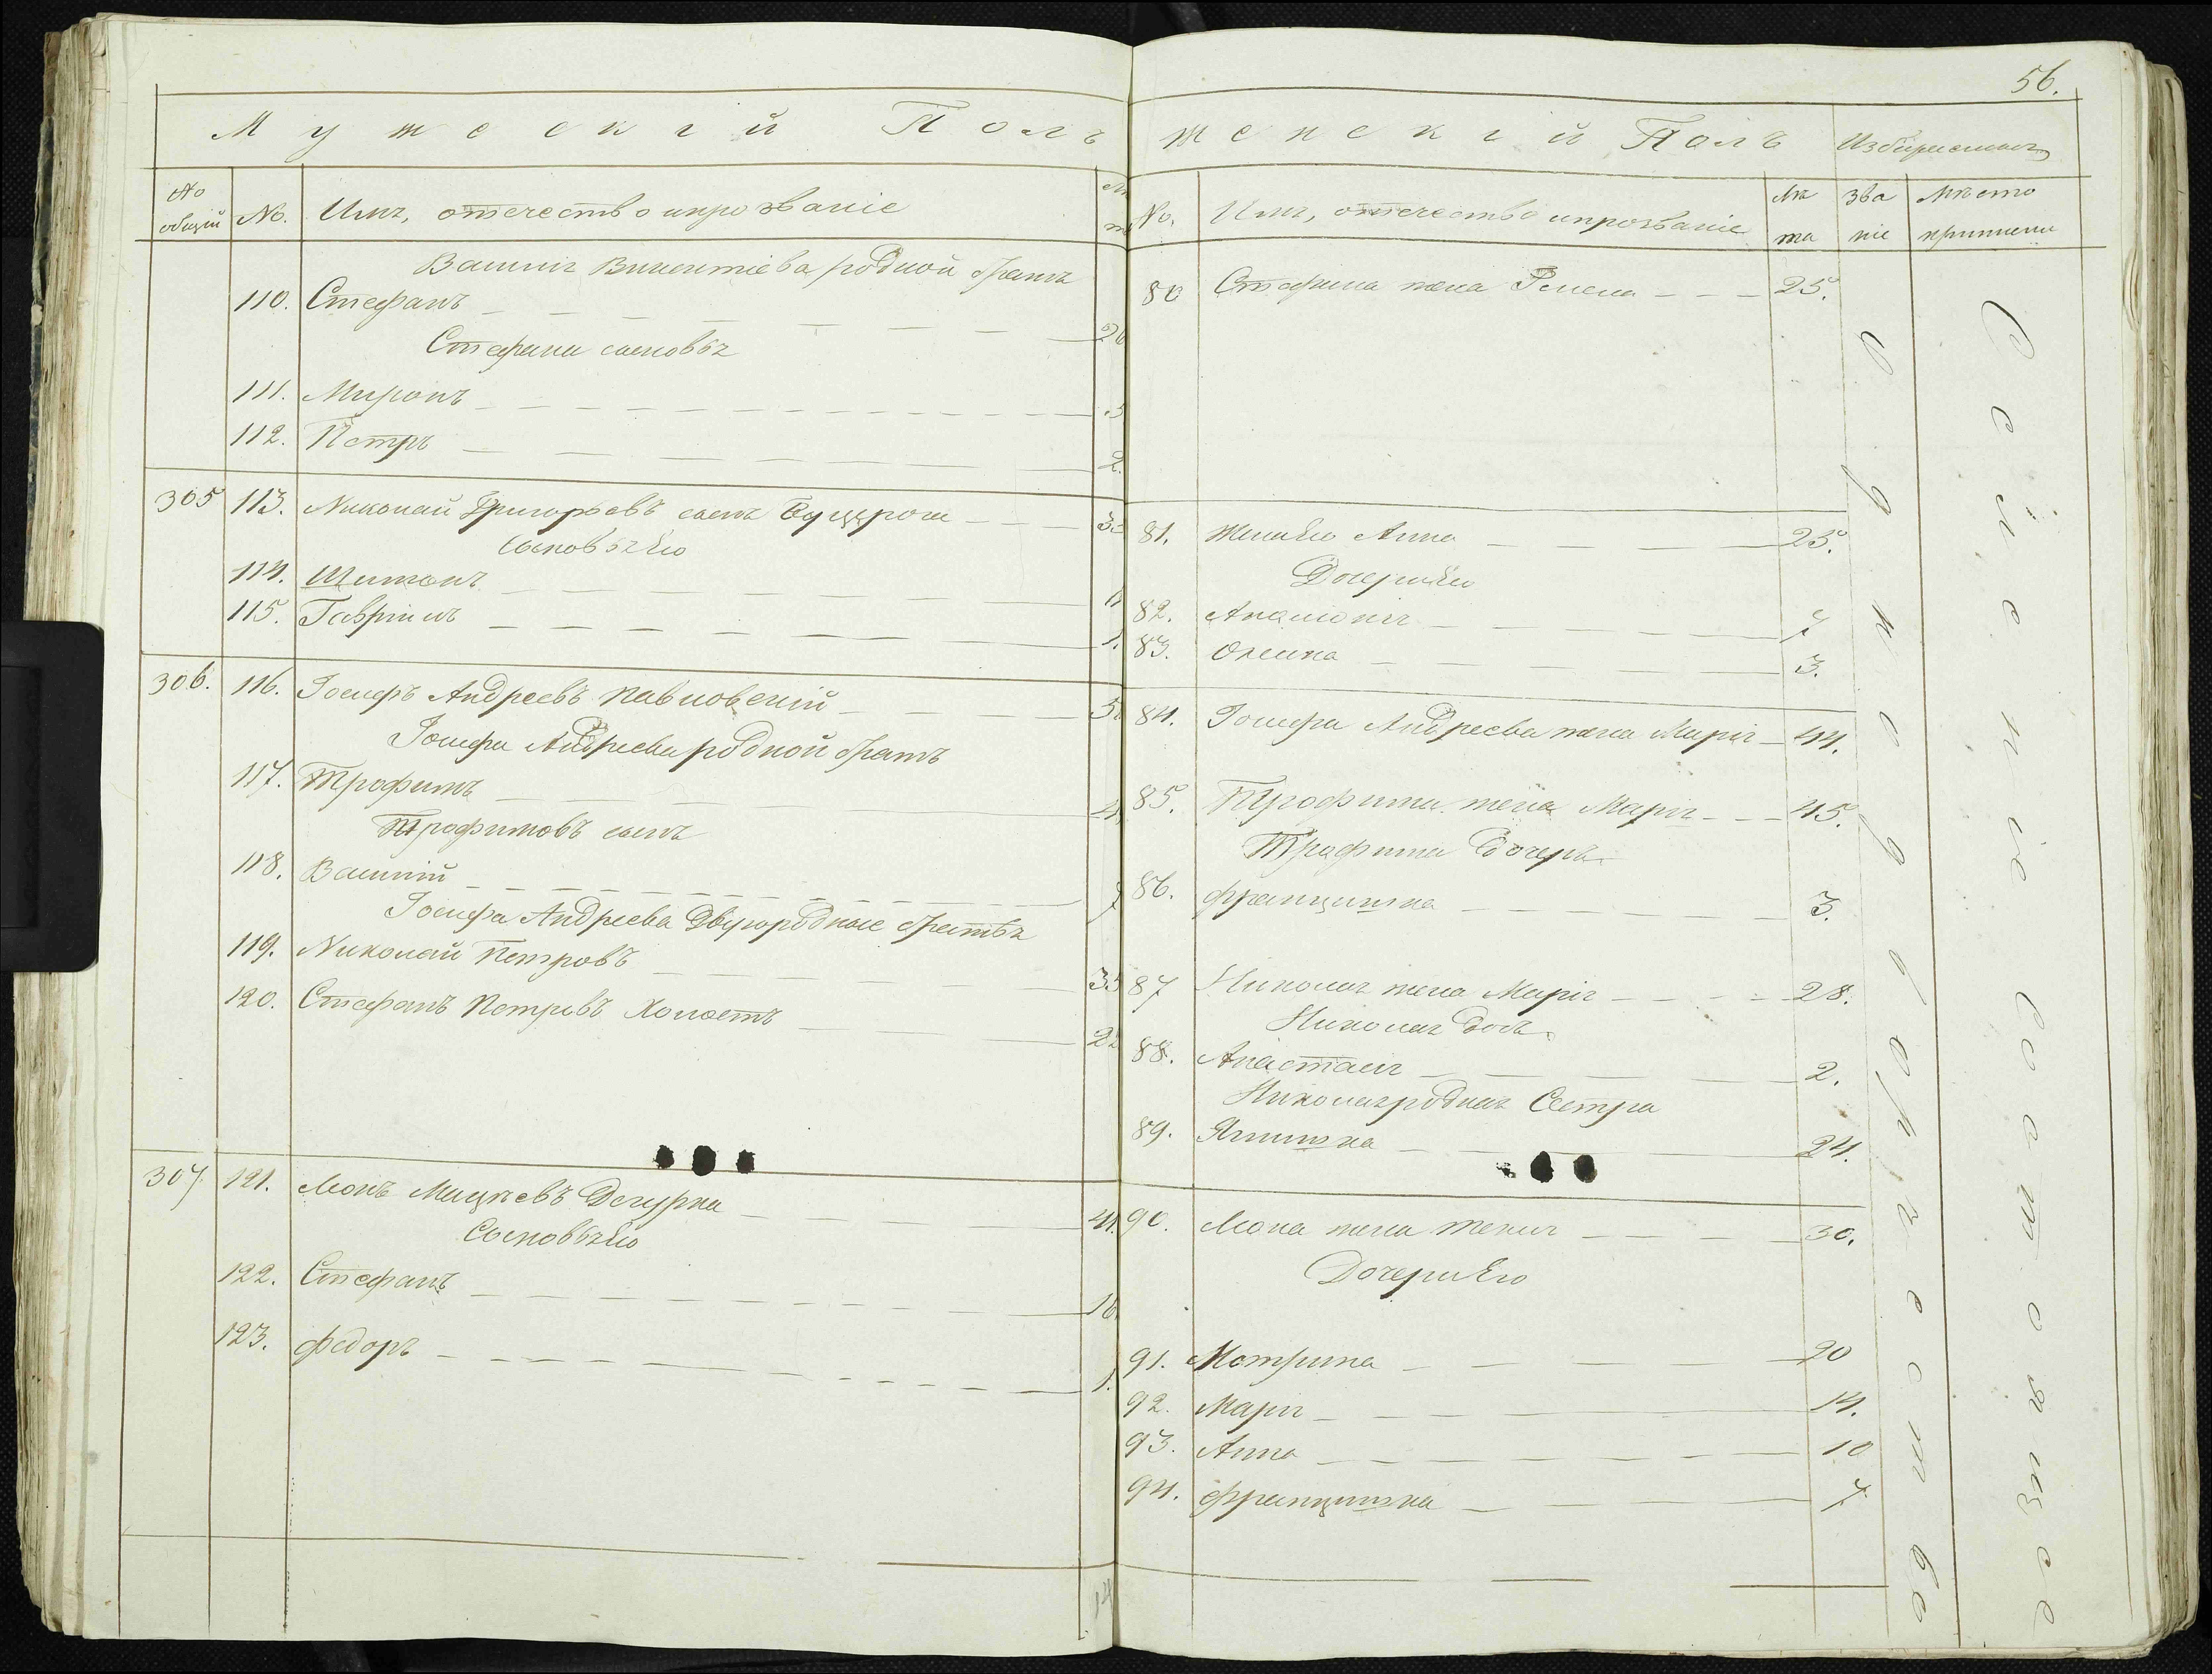 56.
Мужескій Полъ
№ общій
№.
Имя, отечество и прозваніе
Василія Викентіева родной братъ
110. Стефанъ
Стефана сыновья
111. Миронъ
112. Петръ 2.
305 113. Николай Григорьевъ сынъ
Сыновья Его
114.
115. Гавріилъ 1.
306. 116. Іосифъ Андреевъ Павловскій
Іосифа Андреева родной братъ
117. Трофимъ
Трофимовъ сынъ
118. Василій 7
Іосифа Андреева Двуродные братья
119. Николай Петровъ
120. Стефанъ Петровъ Холостъ
307. 121. Леонъ Мацкевъ Дечурка
Сыновья Его
122. Стефанъ
123. Федоръ 1.
Женскій Полъ
Избираемыя
№.
Имя, отечество и прозваніе
Лѣта
Званіе
Мѣсто
80 Стефана жена 25.
81. Жена Его Анна 25.
Дочери Его
82. Аполонія 7
83. Олешка 3.
84. Іосифа Андреева жена Марія 44.
85. Трофима жена Марія 45.
Трофима Дочерь
86. Францишка 3.
87 Николая жена Марія 28.
Николая Дочь
88. Анастасія 2.
Николая родная Сестра
89. 24.
90. Леона жена Текля 30.
Дочери Его
91. Мотрина 20
92. Марія 14.
93. Анна 10
94. Францишка 7
Однодворческое
Сословіе Состоящее